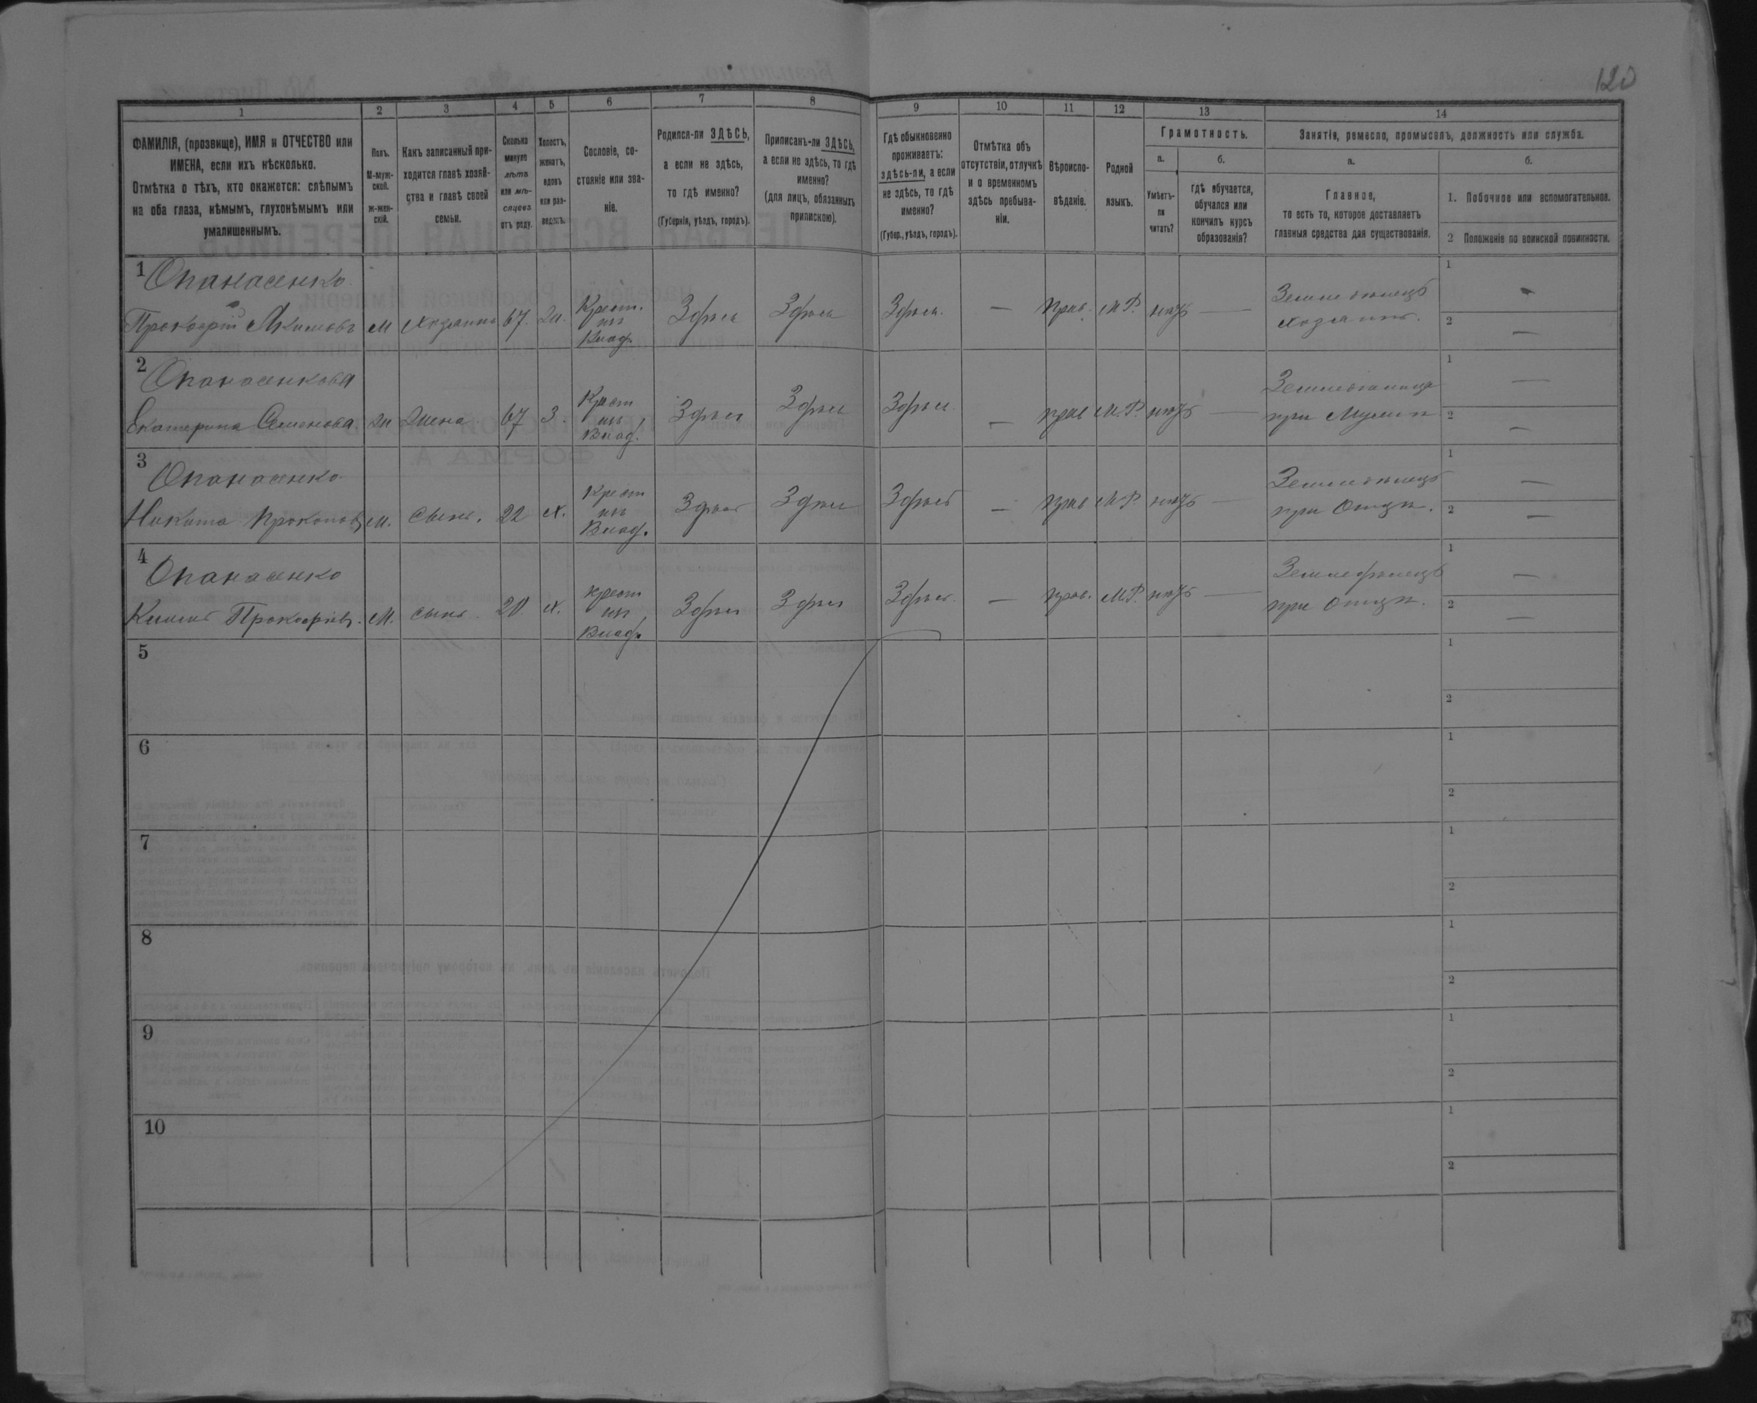 120
1 2 3 4 5 6 7 8 9 10 11 12 13 14
ФАМИЛІЯ, (прозвище), ИМЯ и ОТЧЕСТВО или
ИМЕНА, если ихъ нѣсколько.
Отмѣтка о тѣхъ, кто окажется: слѣпымъ
на оба глаза, нѣмымъ, глухонѣмымъ или
умалишеннымъ.
Полъ.
М-муж-
ской.
ж-жен-
скій.
Какъ записанный при-
ходится главѣ хозяй-
ства и главѣ своей
семьи.
Сколько
минуло
лѣтъ
или мѣ-
сяцевъ
отъ роду.
Холостъ,
женатъ,
вдовъ
или раз-
веденъ.
Сословіе, со-
стояніе или зва-
ніе.
Родился-ли ЗДѢСЬ,
а если не здѣсь,
то гдѣ именно?
(Губернія, уѣздъ, городъ).
Приписанъ-ли ЗДѢСЬ,
а если не здѣсь, то гдѣ
именно?
(для лицъ, обязанныхъ
припискою).
Гдѣ обыкновенно
проживаетъ:
здѣсь-ли, а если
не здѣсь, то гдѣ
именно?
(Губер., уѣздъ, городъ).
Отмѣтка объ
отсутствіи, отлучкѣ
и о временномъ
здѣсь пребыва-
ніи.
Вѣроиспо-
вѣданіе.
Родной
языкъ.
Грамотность.
а.
Умѣетъ-
ли
читать?
б.
гдѣ обучается,
обучался или
кончилъ курсъ
образованія?
Занятіе, ремесло, промыселъ, должность или служба.
а.
Главное,
то есть то, которое доставляетъ
главныя средства для существованія.
б.
1. Побочное или вспомогательное.
2 Положеніе по воинской повинности.
1 Опанасенко
Прокофій Акимовъ м хозяинъ 67. Крест. из Влад. Здѣсь Здѣсь Здѣсь — Прав. М.Р. нѣтъ — Земледѣлецъ хозяинъ. 1 - 2 —
2 Опанасенкова
Екатерина Семенова ж жена 67 З. Крест из Влад. Здѣсь Здѣсь Здѣсь — прав М.Р. нѣтъ — при Мужѣ 1 — 2 —
3 Опанасенко
Никита Прокоповъ м. сынъ. 22 х. Крест из Влад. Здѣсь Здѣсь Здѣсь — прав М.Р. нѣтъ — Земледѣлецъ при Отцѣ. 1 — 2 —
4 Опанасенко
Прокофіевъ. м. сынъ. 20 х. крест из Влад. Здѣсь Здѣсь Здѣсь — прав. М.Р. нѣтъ — Земледѣлецъ при Отцѣ. 1 — 2 —
5 1
2
6 1
2
7 1
2
8 1
2
9 1
2
10 1
2